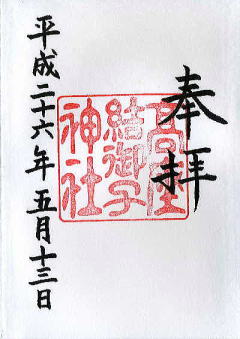 奉拝
高座
結御子
神社
平成二十六年五月十三日